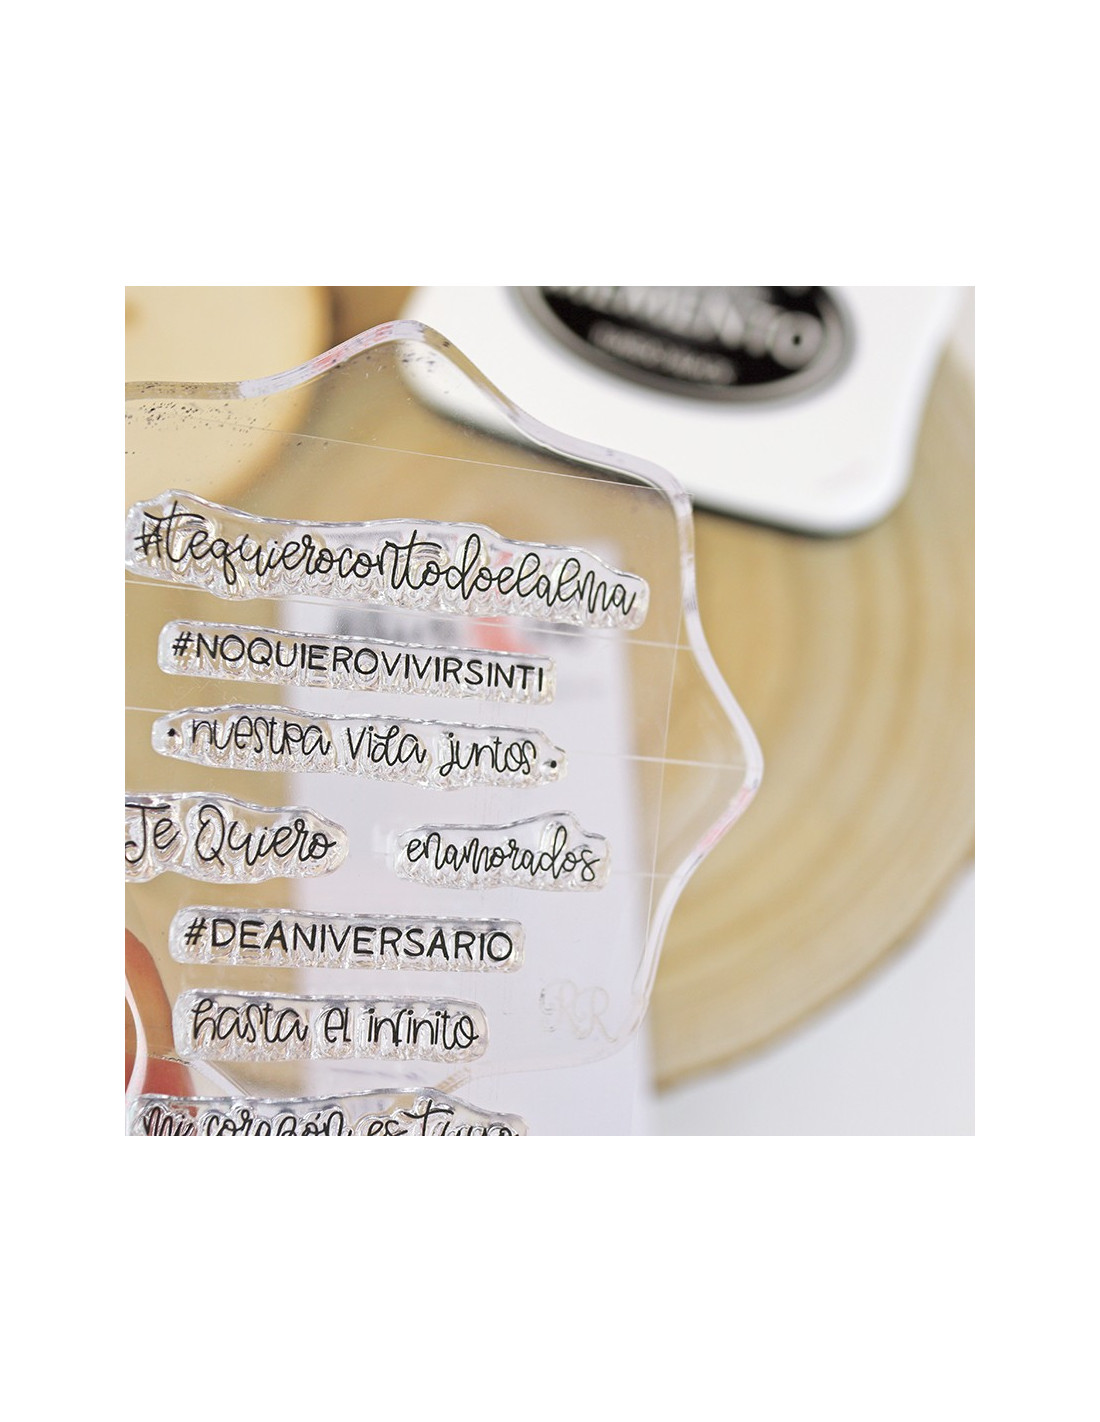 #tequierocontodoelalma
#NOQUIEROVIVIRSINTI
• nuestra vida juntos •
Te Quiero enamorados
#DEANIVERSARIO
hasta el infinito
RR
mi corazón es tuyo